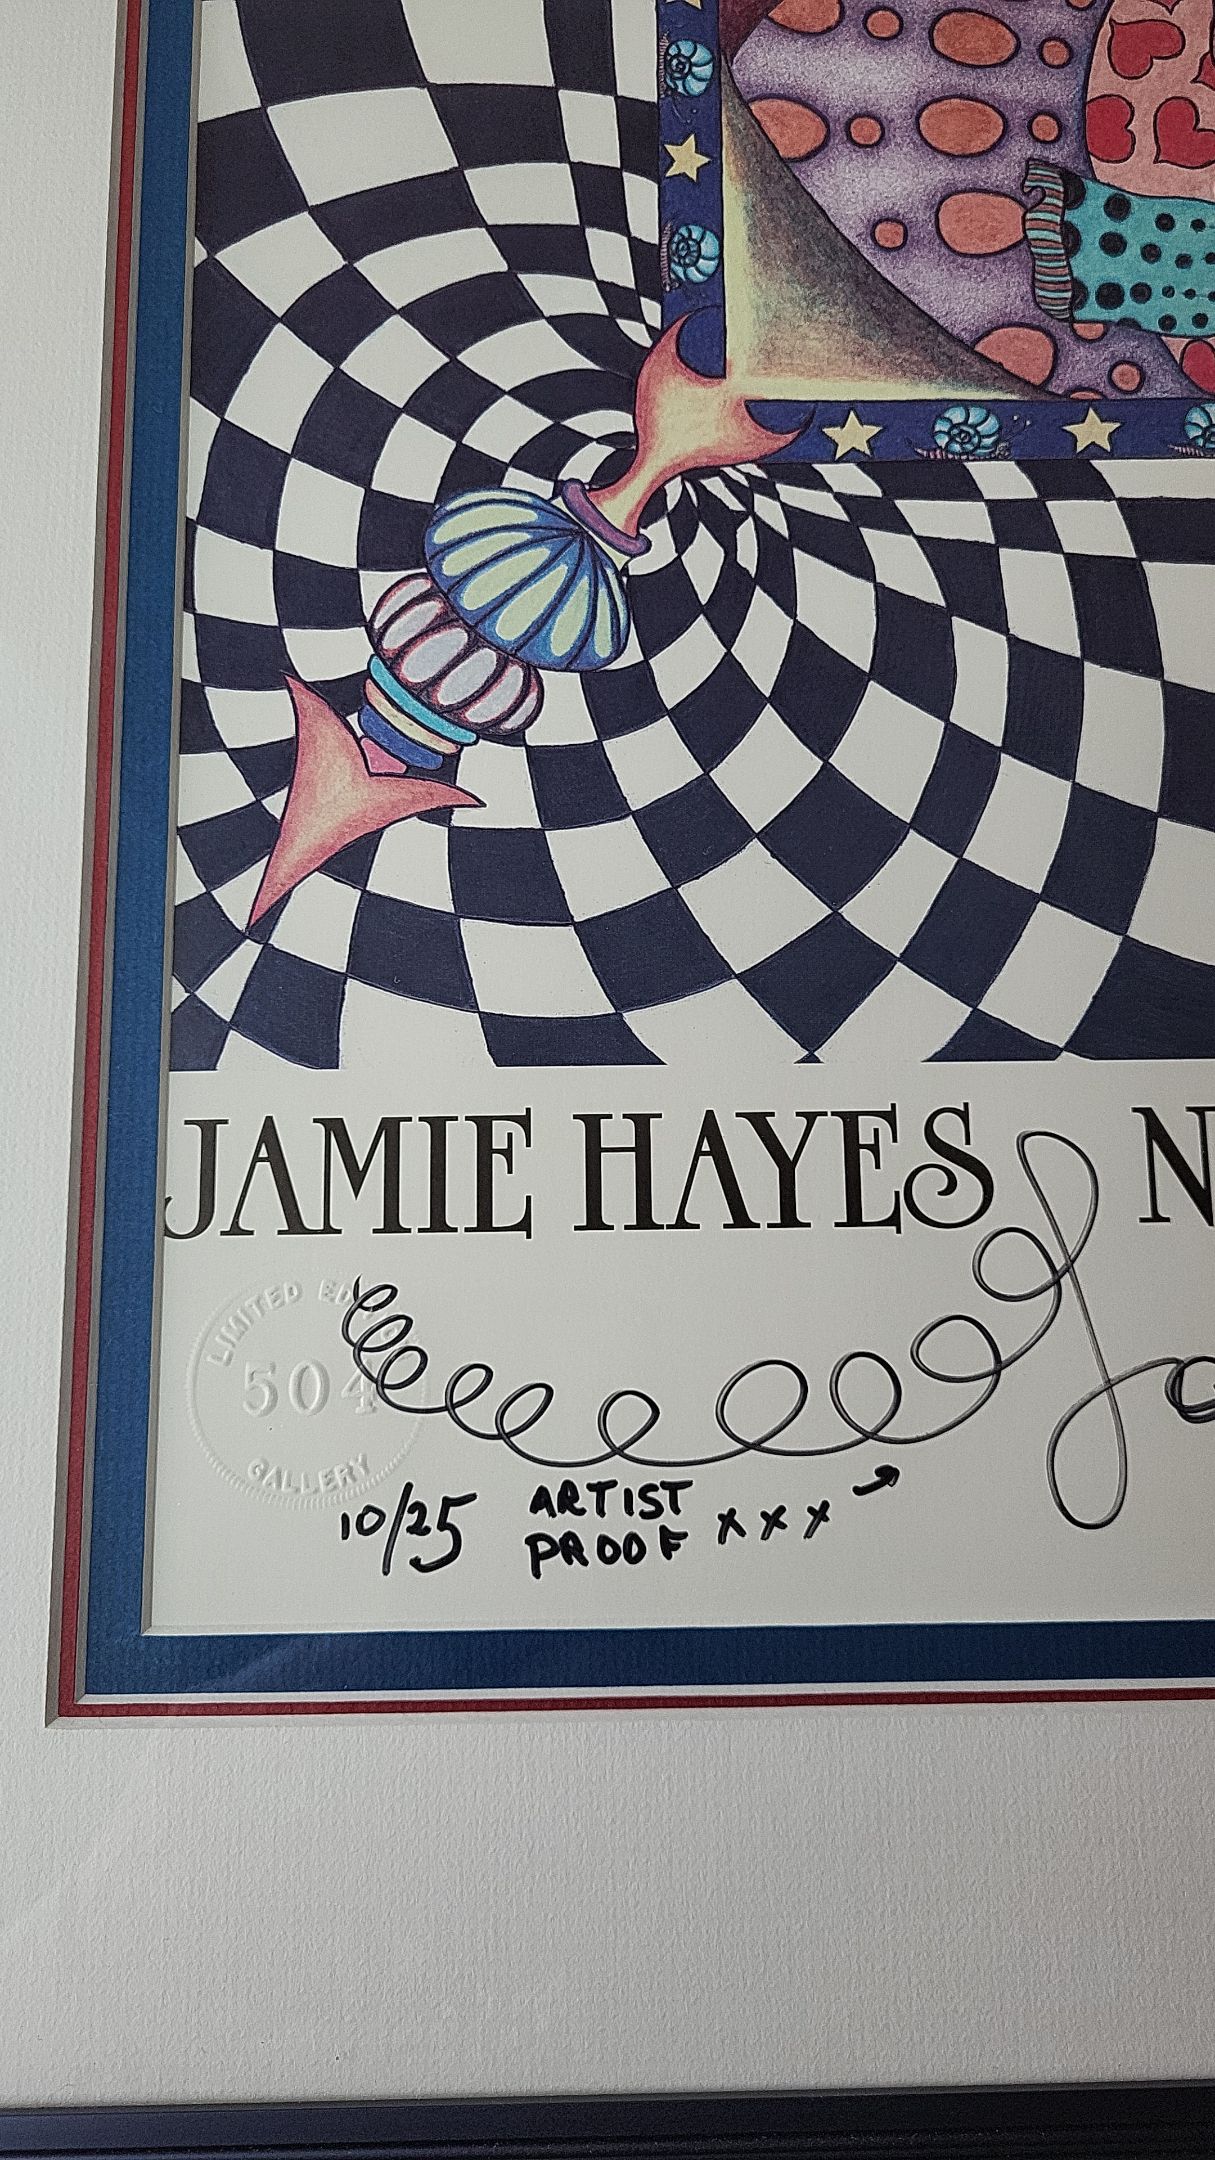 JAMIE HAYES N
LIMITED EDITION
504
GALLERY
10/25 ARTIST PROOF x x x →